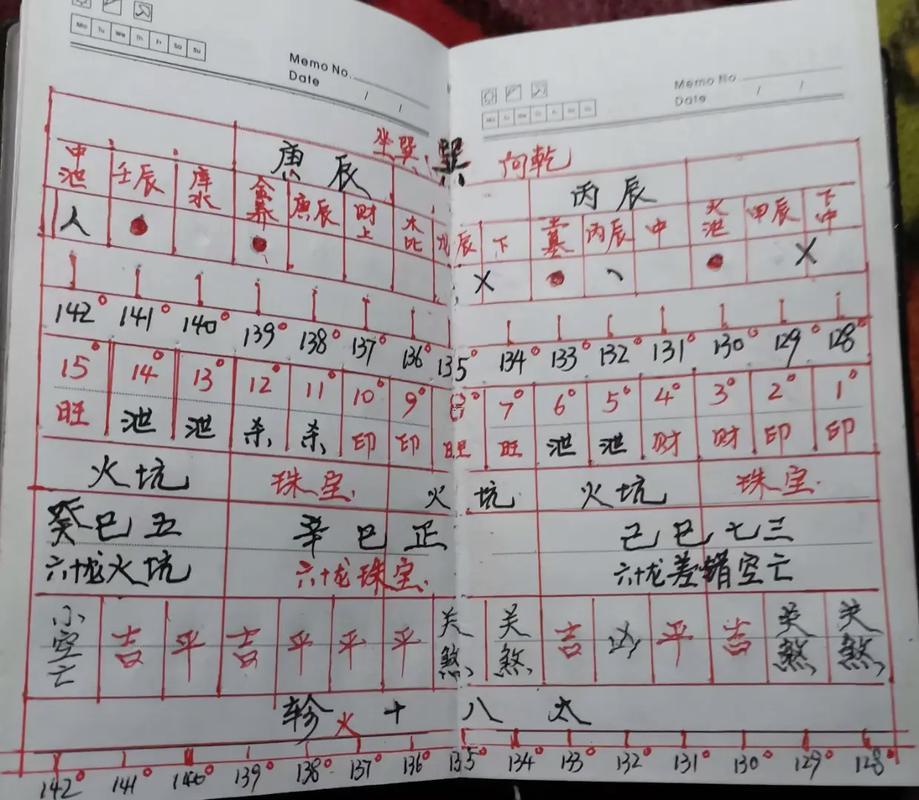 Mo Tu We Th Fr Sa Su
Memo No.
Date / /
Memo No.
Date / /
坐巽 巽 向乾
庚辰 丙辰
中池 壬辰 库水 庚辰 财上 木比 辰 下 丙辰 中 火池 甲辰 下中
人 X 丶 X
142° 141° 140° 139° 138° 137° 136° 135° 134° 133° 132° 131° 130° 129° 128°
15° 14° 13° 12° 11° 10° 9° 8° 7° 6° 5° 4° 3° 2° 1°
旺 泄 泄 杀 杀 印 印 旺 旺 泄 泄 财 财 印 印
火坑 珠宝 火坑 火坑 珠宝
癸巳五 辛巳正 己巳七三
六十龙火坑 六十龙珠宝 六十龙差错空亡
小空亡 吉 平 吉 平 平 平 关煞 关煞 吉 凶 平 吉 关煞 关煞
轸火十八太
142° 141° 140° 139° 138° 137° 136° 135° 134° 133° 132° 131° 130° 129° 128°